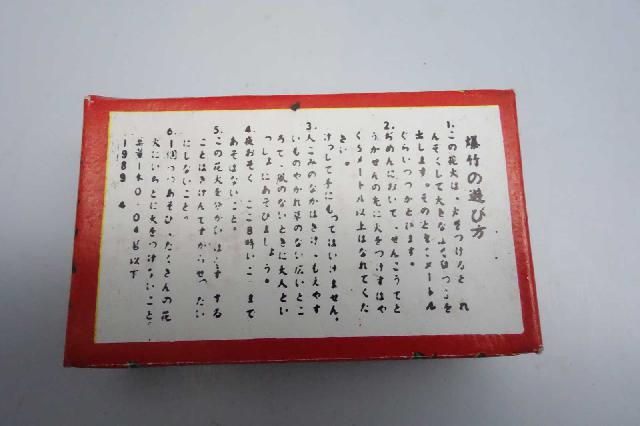 爆竹の遊び方
1.この花火は、火をつけると れ
んぞくして大きな
出します。その
ぐらいつつかとびます。
2.じめんにおいて、せんこうでど
うかせんの先に火をつけすばや
く5メートル以上はなれてくだ
さい。
けっして手にもってはいけません。
3.人ごみのなかはさけ、もえやす
いものやかれ草のない広いとこ
ろで、風のないときに大人とい
っしょにあそびましょう。
4.夜おそく 8時い まで
あそばないこと。
5.この花火を する
ことはきけんですからぜったい
にしないこと。
6.1個づつあそび、たくさんの花
火にいちどに火をつけないこと。
0.04g以下
1989 4